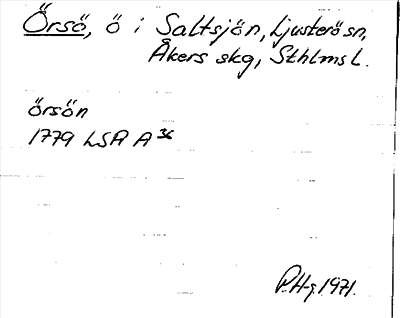 Örsö, ö i Saltsjön, Ljusterö sn,
Åkers skg, Sthlms L.
Örsön
1779 LSA A 36
P.H-g. 1971.